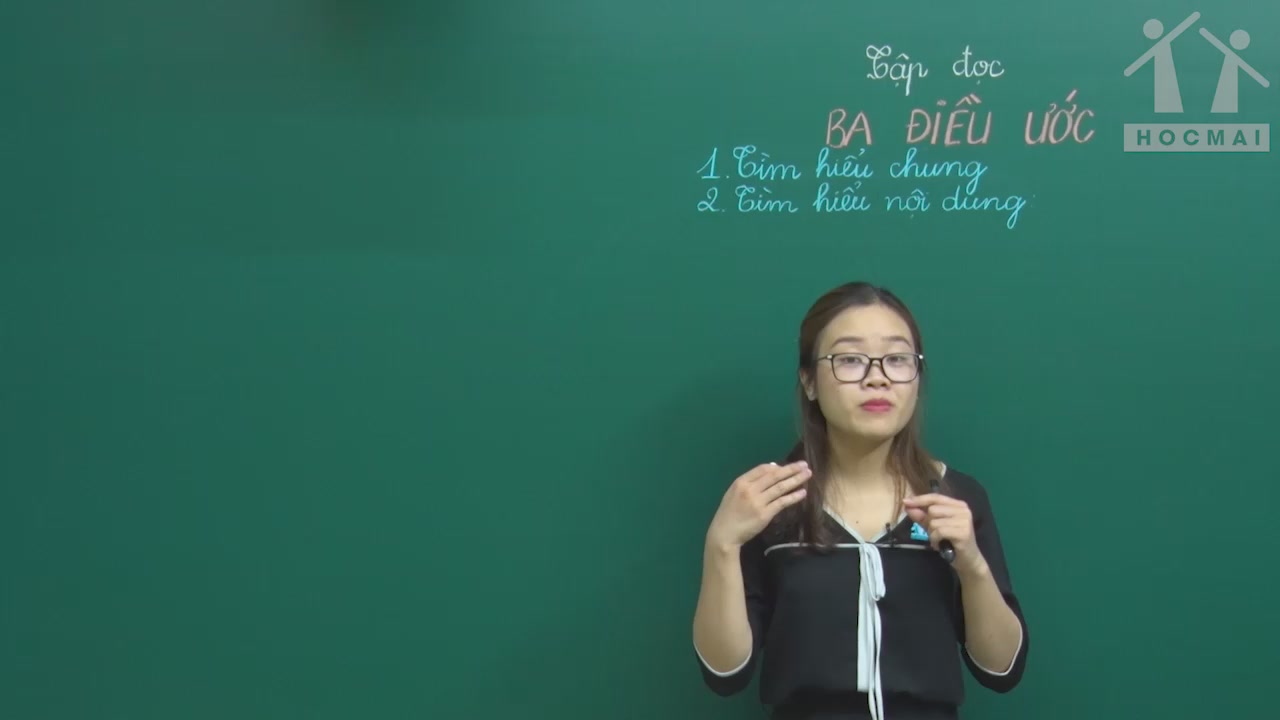 Tập đọc
BA ĐIỀU ƯỚC
1. Tìm hiểu chung
2. Tìm hiểu nội dung
HOCMAI